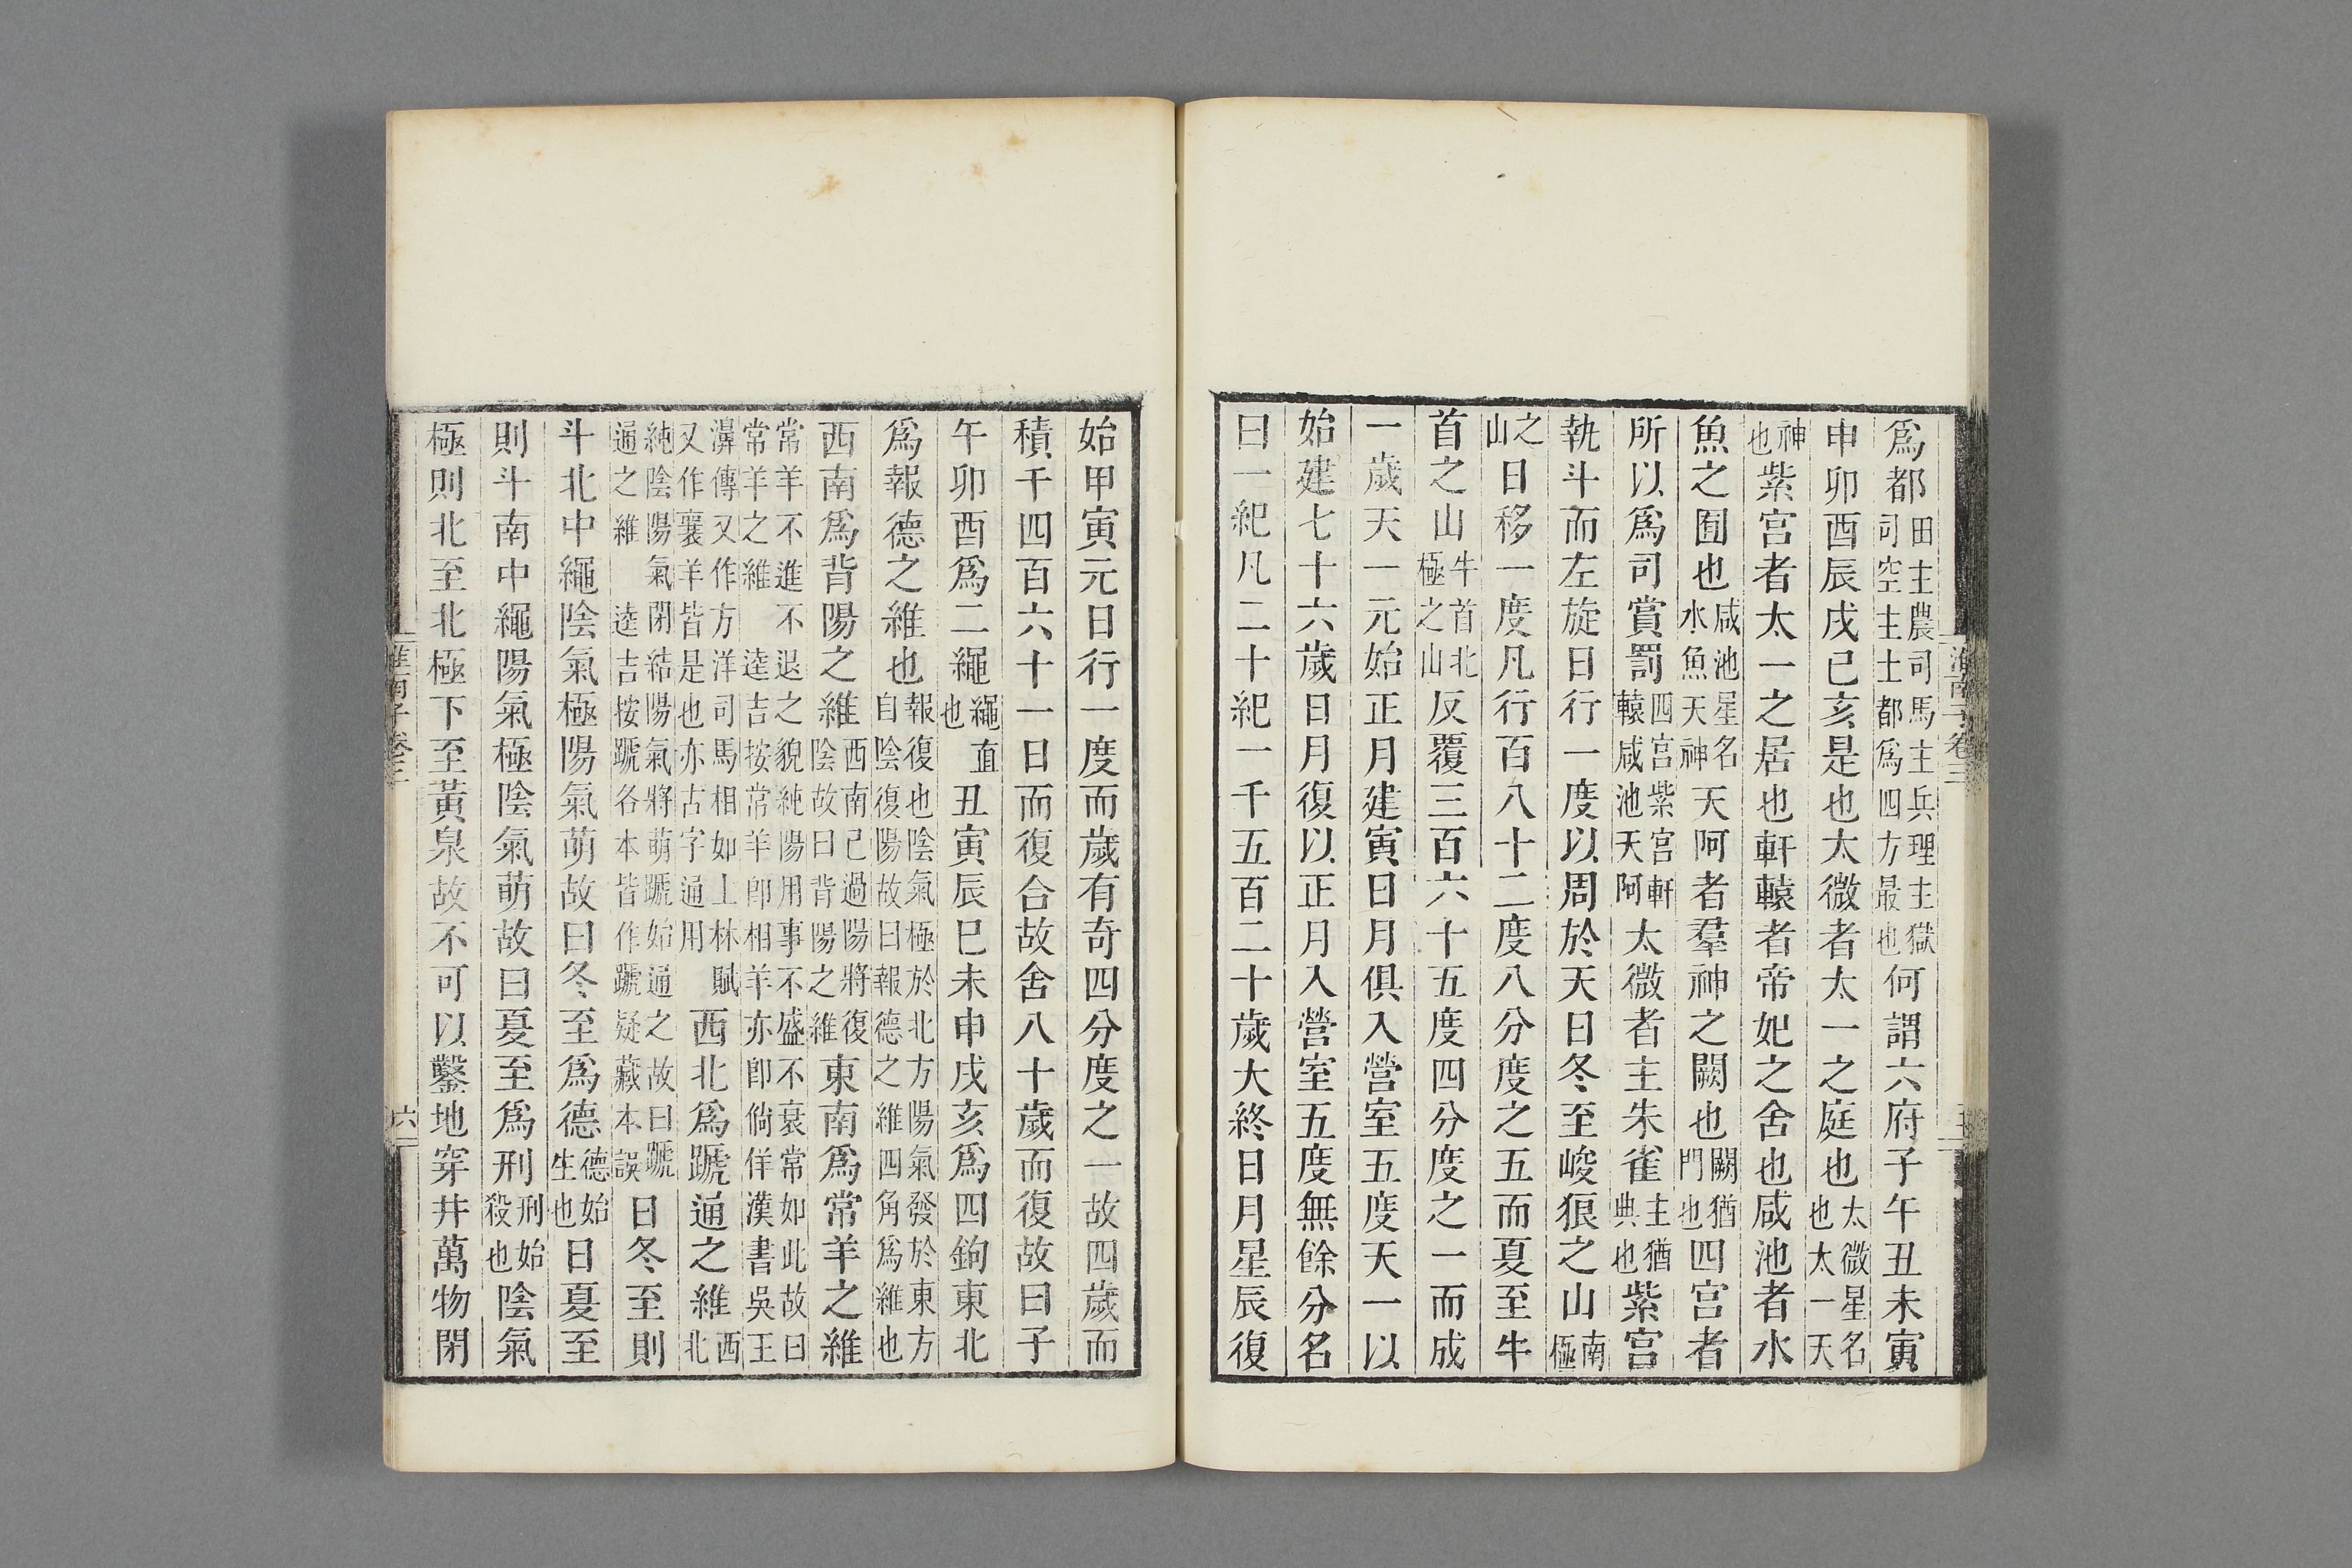 爲都田主農司馬主兵理主獄司空主土都爲四方最也何謂六府子午丑未寅
申卯酉辰戌巳亥是也太微者太一之庭也太微星名也太一天
神也紫宫者太一之居也軒轅者帝妃之舍也咸池者水
魚之囿也咸池星名水魚天神天阿者羣神之闕也闕猶門也四宫者
所以爲司賞罰四宫紫宫軒轅咸池天阿太微者主朱雀主猶典也紫宫
執斗而左旋日行一度以周於天日冬至峻狼之山南極
之山日移一度凡行百八十二度八分度之五而夏至牛
首之山牛首北極之山反覆三百六十五度四分度之一而成
一歲天一元始正月建寅日月俱入營室五度天一以
始建七十六歲日月復以正月入營室五度無餘分名
曰一紀凡二十紀一千五百二十歲大終日月星辰復
始甲寅元日行一度而歲有奇四分度之一故四歲而
積千四百六十一日而復合故舍八十歲而復故曰子
午卯酉爲二繩繩直也丑寅辰巳未申戌亥爲四鉤東北
爲報德之維也報復也陰氣極於北方陽氣發於東方自陰復陽故曰報德之維四角爲維也
西南爲背陽之維西南已過陽將復陰故曰背陽之維東南爲常羊之維
常羊不進不退之貌純陽用事不盛不衰常如此故曰常羊之維 逵吉按常羊卽相羊亦卽倘佯漢書吳王
濞傳又作方洋司馬相如上林賦又作襄羊皆是也亦古字通用西北爲蹏通之維西北
純陰陽氣閉結陽氣將萌蹏始通之故曰蹏通之維 逵吉按蹏各本皆作號疑藏本誤日冬至則
斗北中繩陰氣極陽氣萌故曰冬至爲德德始生也日夏至
則斗南中繩陽氣極陰氣萌故曰夏至爲刑刑始殺也陰氣
極則北至北極下至黃泉故不可以鑿地穿井萬物閉
淮南子卷三
六